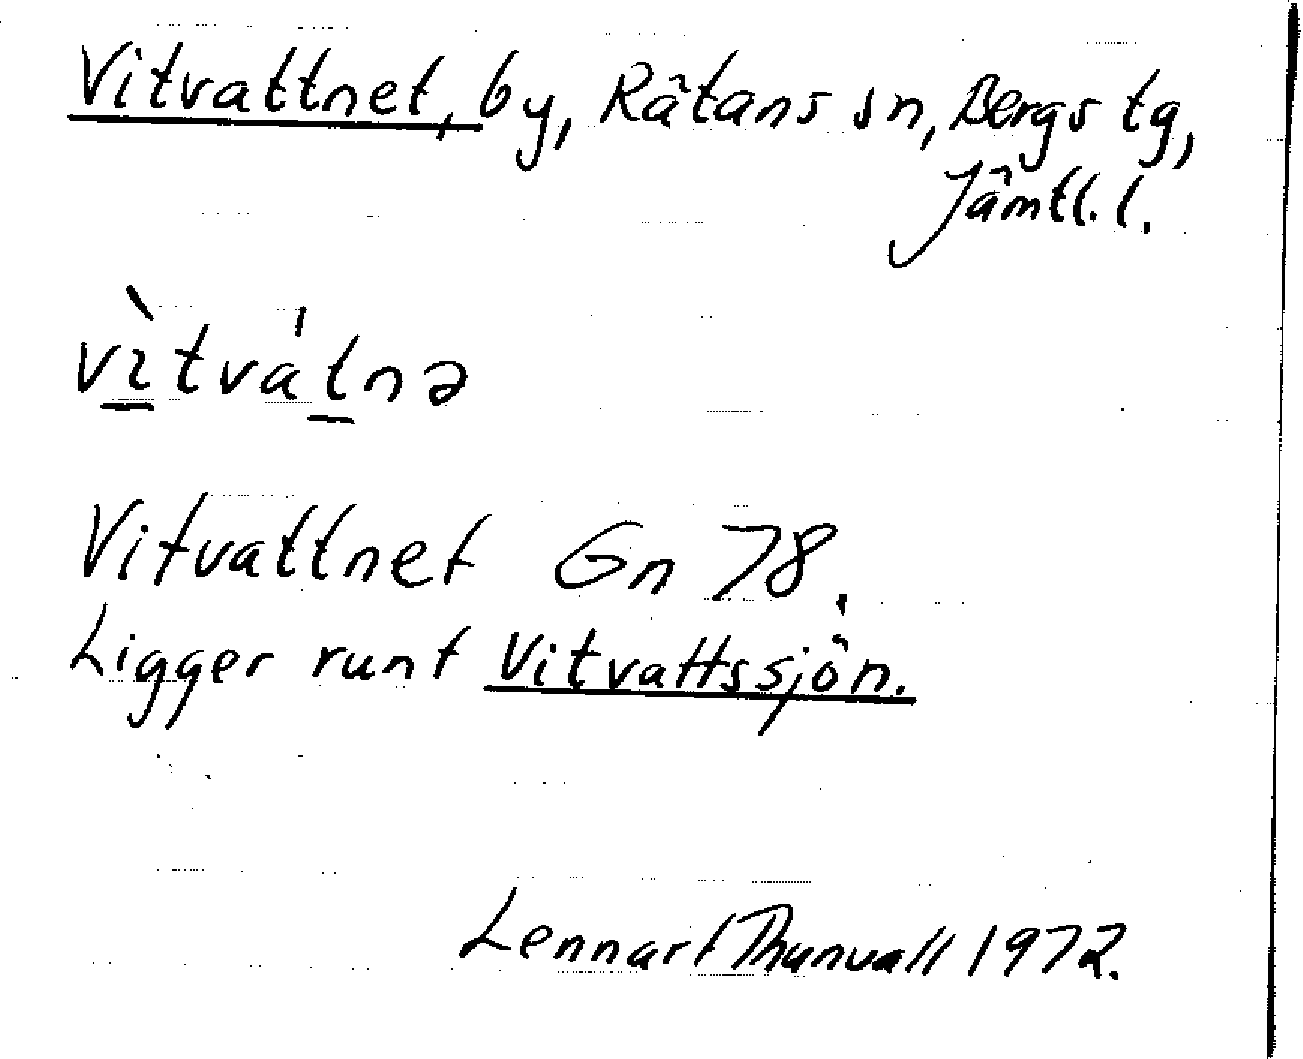 Vitvattnet, by, Rätans sn, Bergs tg,
Jämtl. l.
vɪ̀tvátnə
Vitvattnet Gn 78.
Ligger runt Vitvattssjön.
Lennart Thunvall 1972.